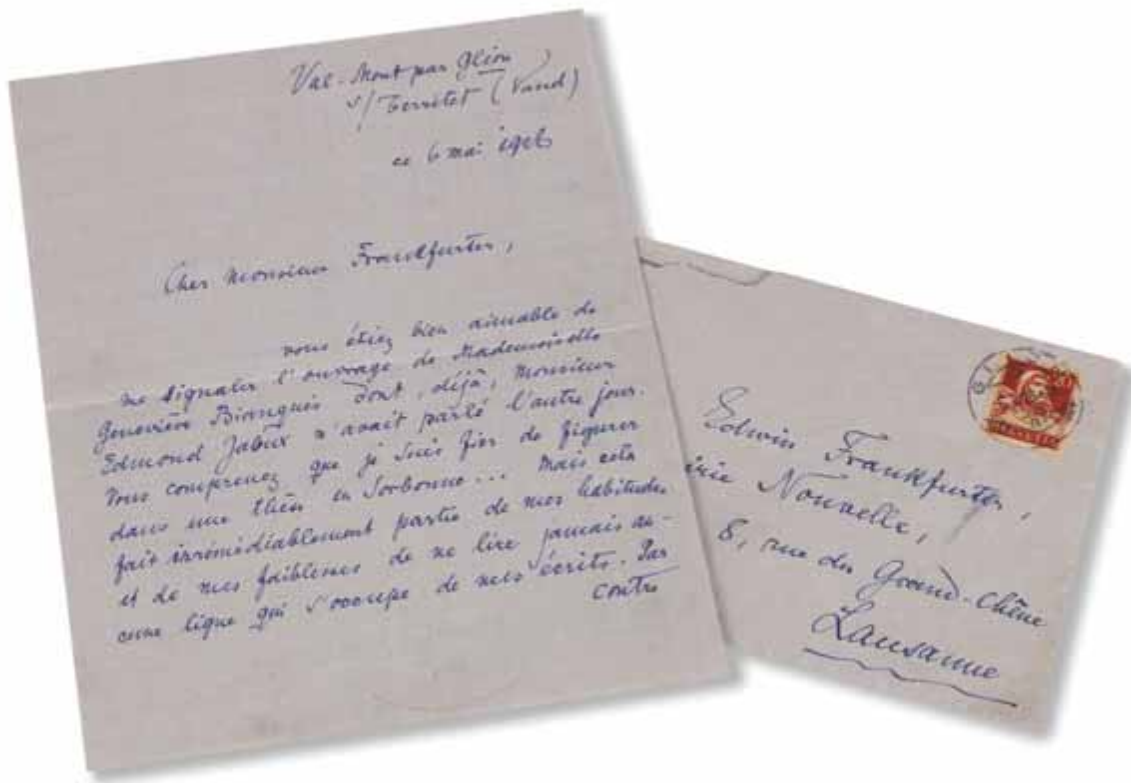 Val-Mont par Glion
s/ Territet (Vaud)
ce 6 mai 1926
Cher Monsieur Frankfurter,
vous étiez bien aimable de
me signaler l'ouvrage de Mademoiselle
Geneviève Bianquis dont, déjà, Monsieur
Edmond Jaloux m'avait parlé l'autre jour.
Vous comprenez que je suis fier de figurer
dans une thèse en Sorbonne... Mais cela
fait irrémédiablement partie de mes habitudes
et de mes faiblesses de ne lire jamais au-
cune ligne qui s'occupe de mes écrits. Par
contre
Edwin Frankfurter,
airie Nouvelle,
8, rue du Grand-Chêne
Lausanne
HELVETIA